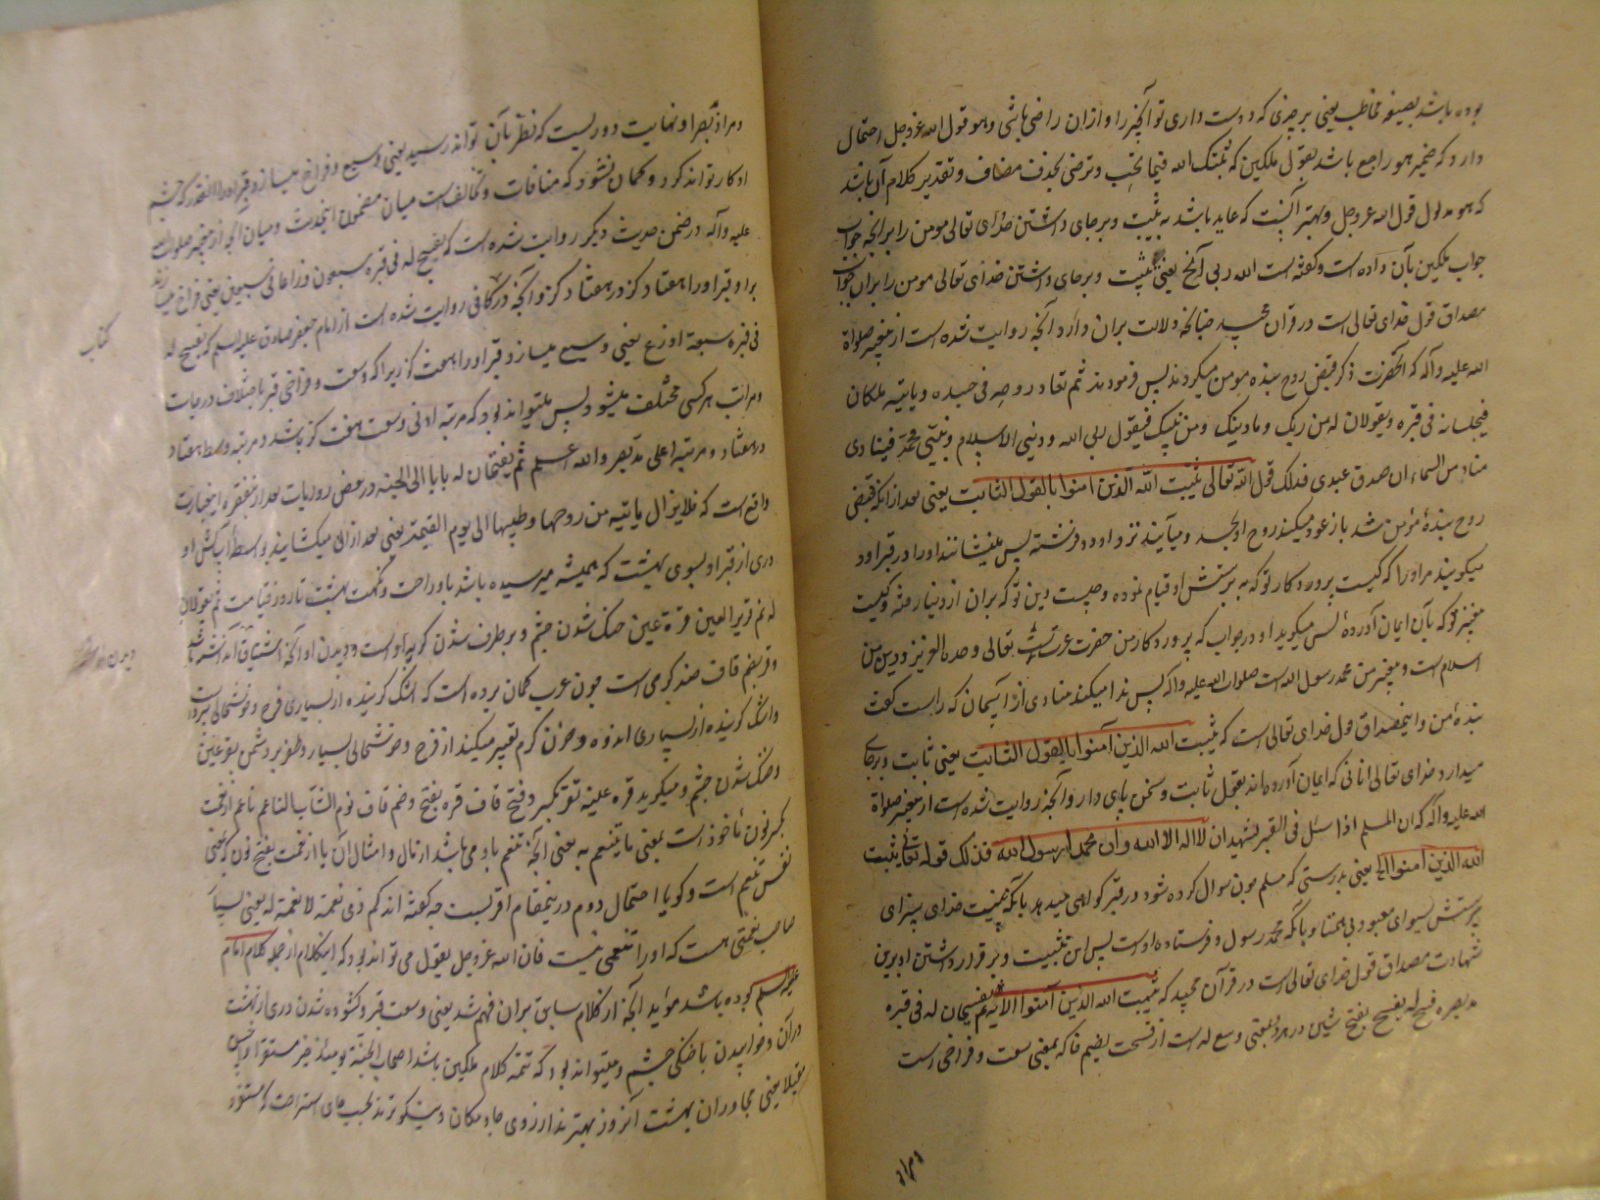 بوده باشد بصیغه مخاطب یعنی بر چیزی که دوست داری تو آنچیز را و ازان راضی باشی و هو قول الله عزوجل احتمال
دارد که ضمیر هو راجع باشد بقول ملکین که ثبتک الله فیما تحب و ترضی بحذف مضاف و تقدیر کلام آن باشد
که هو مدلول قول الله عزوجل و بهتر آنست که عاید باشد به تثبیت و برجای داشتن خدای تعالی مومن را بر آنچه جواب
جواب ملکین بآن داده است و گفته است الله ربی الخ یعنی تثبیت و برجای داشتن خدای تعالی مومن را بران جواب
مصداق قول خدای تعالی است در قران مجید چنانچه دلالت بران دارد آنچه روایت شده است از پیغمبر صلواة
الله علیه و آله که آنحضرت ذکر قبض روح بنده مومن میکردند پس فرمودند ثم تعاد روحه فی جسده و یاتیه ملکان
فیجلسانه فی قبره و یقولان له من ربک و ما دینک و من نبیک فیقول ربی الله و دینی الاسلام و نبیی محمد فینادی
مناد من السماء ان صدق عبدی فذلک قول الله تعالی یثبت الله الذین امنوا بالقول الثابت یعنی بعد از انکه قبض
روح بنده مؤمن شد باز عود میکند روح او بجسد و میآیند نزد او دو فرشته پس مینشانند او را در قبر او و
میگویند مر او را که کیست پروردگار تو که به پرستش او قیام نموده و چیست دین تو که بران از دنیا رفته و کیست
پیغمبر تو که بآن ایمان آورده پس میگوید او در جواب که پروردگار من حضرت عزتست تعالی وحده العزیز و دین من
اسلام است و پیغمبر من محمد رسول الله است صلوات الله علیه و اله پس ندا میکند منادی از آسمان که راست گفت
بنده من و اینمصداق قول خدای تعالی است که یثبت الله الذین آمنوا بالقول الثابت یعنی ثابت و برجای
میدارد خدای تعالی انانی که ایمان آورده‌اند بقول ثابت و سخن پای دار و آنچه روایت شده است از پیغمبر صلواة
الله علیه و آله که ان المسلم اذا سئل فی القبر یشهد ان لا اله الا الله و ان محمدا رسول الله فذلک قوله تعالی یثبت
الله الذین آمنوا الخ یعنی بدرستی که مسلم چون سوال کرده شود در قبر گواهی میدهد بانکه نیست خدای سزای
پرستش سوای معبود بی همتا و بانکه محمد رسول و فرستاده اوست پس این تثبیت و برقرار داشتن او برین
شهادت مصداق قول خدای تعالی است در قرآن مجید که یثبت الله الذین آمنوا الآیه ثم یفسحان له فی قبره
مد بصره فسح له یفسح بفتح سین در هر دو بمعنی وسع له است از فسحت بضم فا که بمعنی وسعت و فراخی است
و مراد
و مراد بصر او نهایت دوریست که نظر بآن تواند رسید یعنی وسیع و فراخ میسازد قبر او را آنقدر که چشم
او کار تواند کرد و گمان نشود که منافات و تخالف است میان مضمون اینحدیث و میان آنچه از پیغمبر صلوات الله
علیه و آله در ضمن حدیث دیگر روایت شده است که یفسح له فی قبره سبعون ذراعا فی سبعین یعنی فراخ میسازند
بر او قبر او را هفتاد گز در هفتاد گز و آنچه در کافی روایت شده است از امام جعفر صادق علیه السلم که یفسح له
فی قبره سبعة اذرع یعنی وسیع میسازد قبر او را هفت گز زیرا که وسعت و فراخی قبر باختلاف درجات
و مراتب هر کسی مختلف میشود پس میتواند بود که مرتبه ادنی وسعت هفت گز باشد و مرتبه وسط هفتاد
در هفتاد و مرتبه اعلی مد بصر و الله اعلم ثم یفتحان له بابا الی الجنه در بعض روایات بعد از نیفقره اینعبارت
واقع است که فلا یزال یاتیه من روحها و طیبها الی یوم القیمة یعنی بعد از ان میکشایند
دری از قبر او بسوی بهشت که همیشه میرسیده باشد باو راحت و نکهت بهشت تا روز قیامت ثم یقولان
له نم قریر العین قرة عین خنک شدن چشم و برطرف شدن گریه او است و دیدن او آنچه اشتیاق آن داشته باشد
و قر بضم قاف ضد گرمی است چون عرب گمان برده است که اشک گرینده از بسیاری فرح و خوشحالی سرد است
و اشک گرینده از بسیاری اندوه و حزن گرم تعبیر میکنند از فرح و خوشحالی بسیار و ظفر بر دشمن بقرة عین
و خنک شدن چشم و میگوید قره عینه تقر بکسر و فتح قاف قره بفتح و ضم قاف نوم الشاب الناعم ناعم از نعمت
بکسر نون ماخوذ است بمعنی ما یتنعم به یعنی آنچه تنعم باو می باشد از مال و امثال آن یا از نعمت بفتح نون که بمعنی
نفس تنعم است و گویا احتمال دوم در ینمقام اقربست چه گفته اند کم ذی نعمة لا نعمة له یعنی بسیار
صاحب نعمتی هست که او را تنعمی نیست فان الله عزوجل یقول می تواند بود که اینکلام از جمله کلام امام
علیه السلم بوده باشد موید آنچه از کلام سابق بران فهم شد یعنی وسعت قبر و گشوده شدن دری از بهشت
در آن و خوابیدن با خنکی چشم و میتواند بود که تتمه کلام ملکین باشد اصحاب الجنة یومئذ خیر مستقرا و احسن
مقیلا یعنی مجاوران بهشت آنروز بهترند از روی جا و مکان و نیکوترند بحسب جای استراحت که مستقر
کتاب